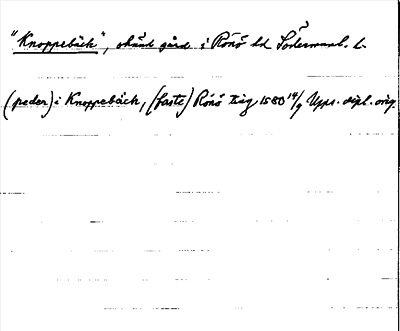 "Knoppebäck", okänd gård i Rönö hd Södermanl. l.
(peder) i Knoppebäck, (faste) Rönö ting 1580 14/9 Upps. dipl. orig.